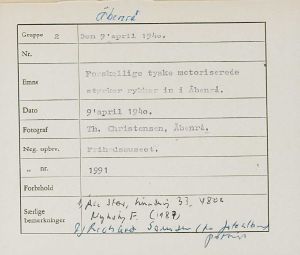 Åbenrå
Gruppe 2 Den 9'april 1940.
Nr.
Emne Forskellige tyske motoriserede
styrker rykker in i Åbenrå.
Dato 9'april 1940.
Fotograf Th. Christensen, Åbenrå.
Neg. opbev. Frihedsmuseet.
„ nr. 1991
Forbehold
Særlige bemærkninger 33, 4800
Nykøbing F. (1987)
2)